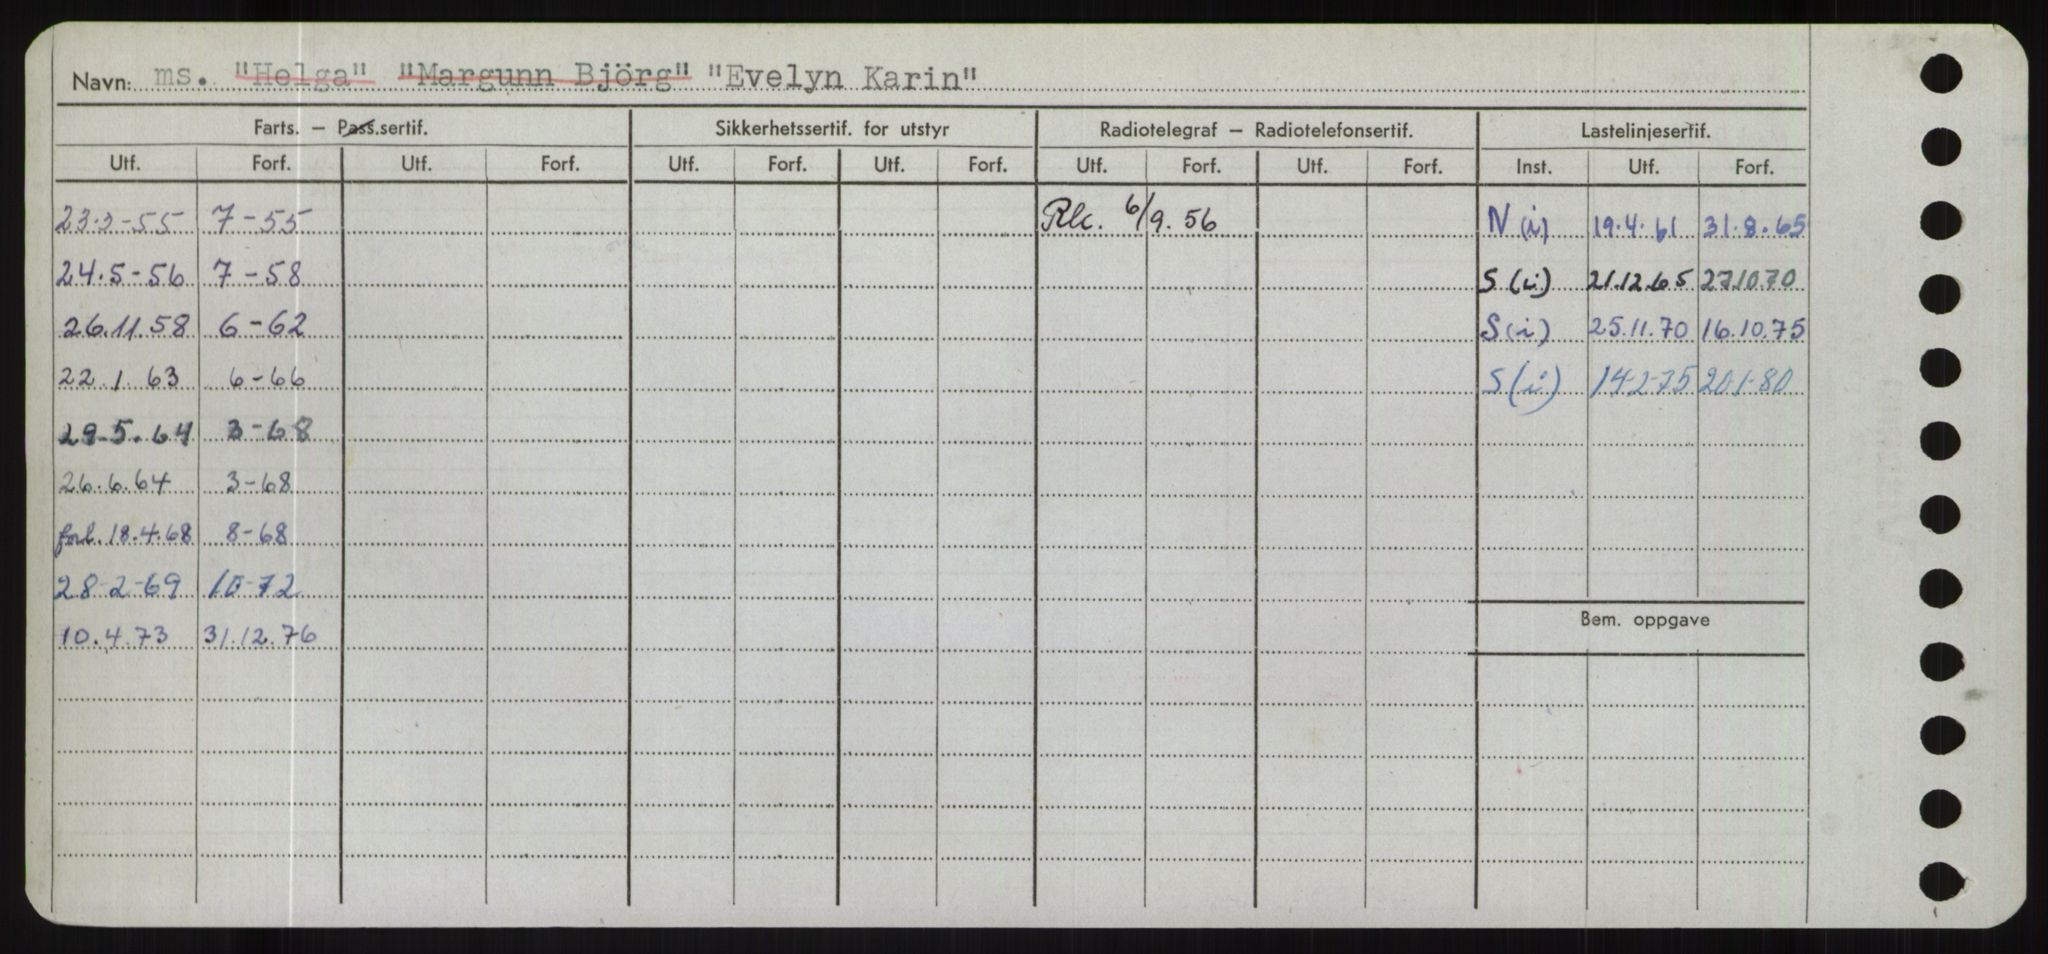 Navn: ms. "Helga" "Margunn Björg" "Evelyn Karin"
Farts. – Pass.sertif. Sikkerhetssertif. for utstyr Radiotelegraf – Radiotelefonsertif. Lastelinjesertif.
Utf. Forf. Utf. Forf. Utf. Forf. Utf. Forf. Utf. Forf. Utf. Forf. Inst. Utf. Forf.
23.3-55 7-55 Rk. 6/9.56 N(i) 19.4.61 31.8.65
24.5-56 7-58 S(i) 21.12.65 27.10.70
26.11.58 6-62 S(i) 25.11.70 16.10.75
22.1.63 6-66 S(i) 14-2-75 20-1-80
29.5.64 3-68
26.6.64 3-68
forl. 18.4.68 8-68
28-2-69 10-72
Bem. oppgave
10.4.73 31.12.76